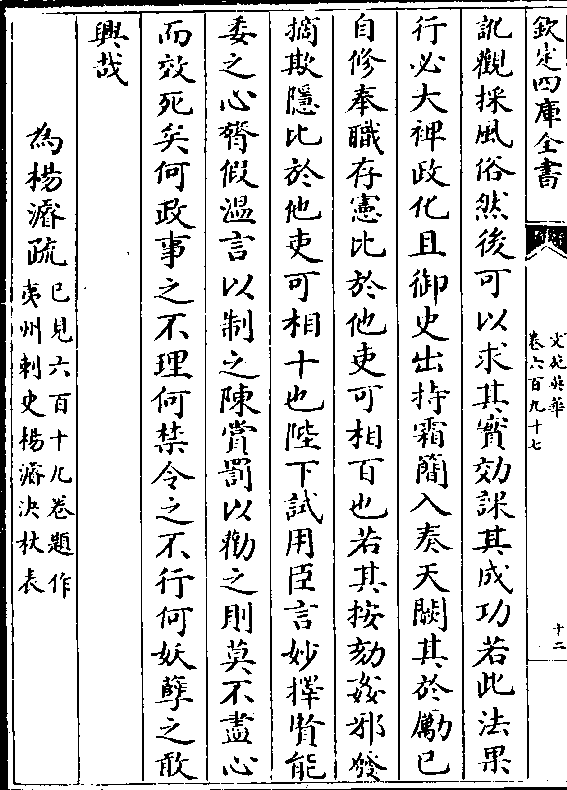 欽定四庫全書
文苑英華
卷六百九十七
十二
訛觀採風俗然後可以求其實効課其成功若此法果
行必大裨政化且御史出持霜簡入奏天闕其於勵己
自修奉職存憲比於他吏可相百也若其按劾姦邪發
摘欺隱比於他吏可相十也陛下試用臣言妙擇賢能
委之心膂假溫言以制之陳賞罰以勸之則莫不盡心
而效死矣何政事之不理何禁令之不行何妖孽之敢
興哉
為楊濬疏已見六百十九卷題作
夷州刺史楊濬決杖表